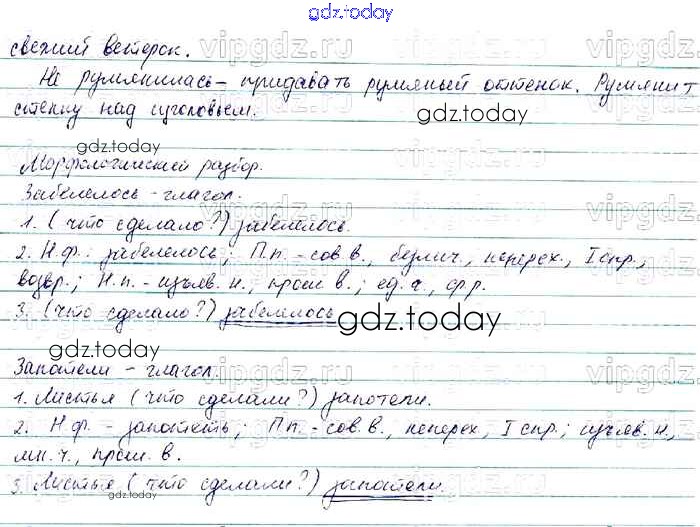 gdz.today
свежий ветерок.
Не румянилась - придавать румяный оттенок. Румянит
стенку над изголовьем.
Морфологический разбор.
Забелелось - глагол.
1. (что сделало?) забелелось.
2. Н.ф.: забелелось; П.п. - сов.в., безлич., неперех., I спр.,
возвр.; Н.п. - изъяв.н., прош.в.; ед.ч., ср.р.
3. (что сделало?) забелелось
Запотели - глагол.
1. Листья (что сделали?) запотели.
2. Н.ф. - запотеть; П.п. - сов.в., неперех., I спр.; изъяв.н.,
мн.ч., прош.в.
3. Листья (что сделали?) запотели.